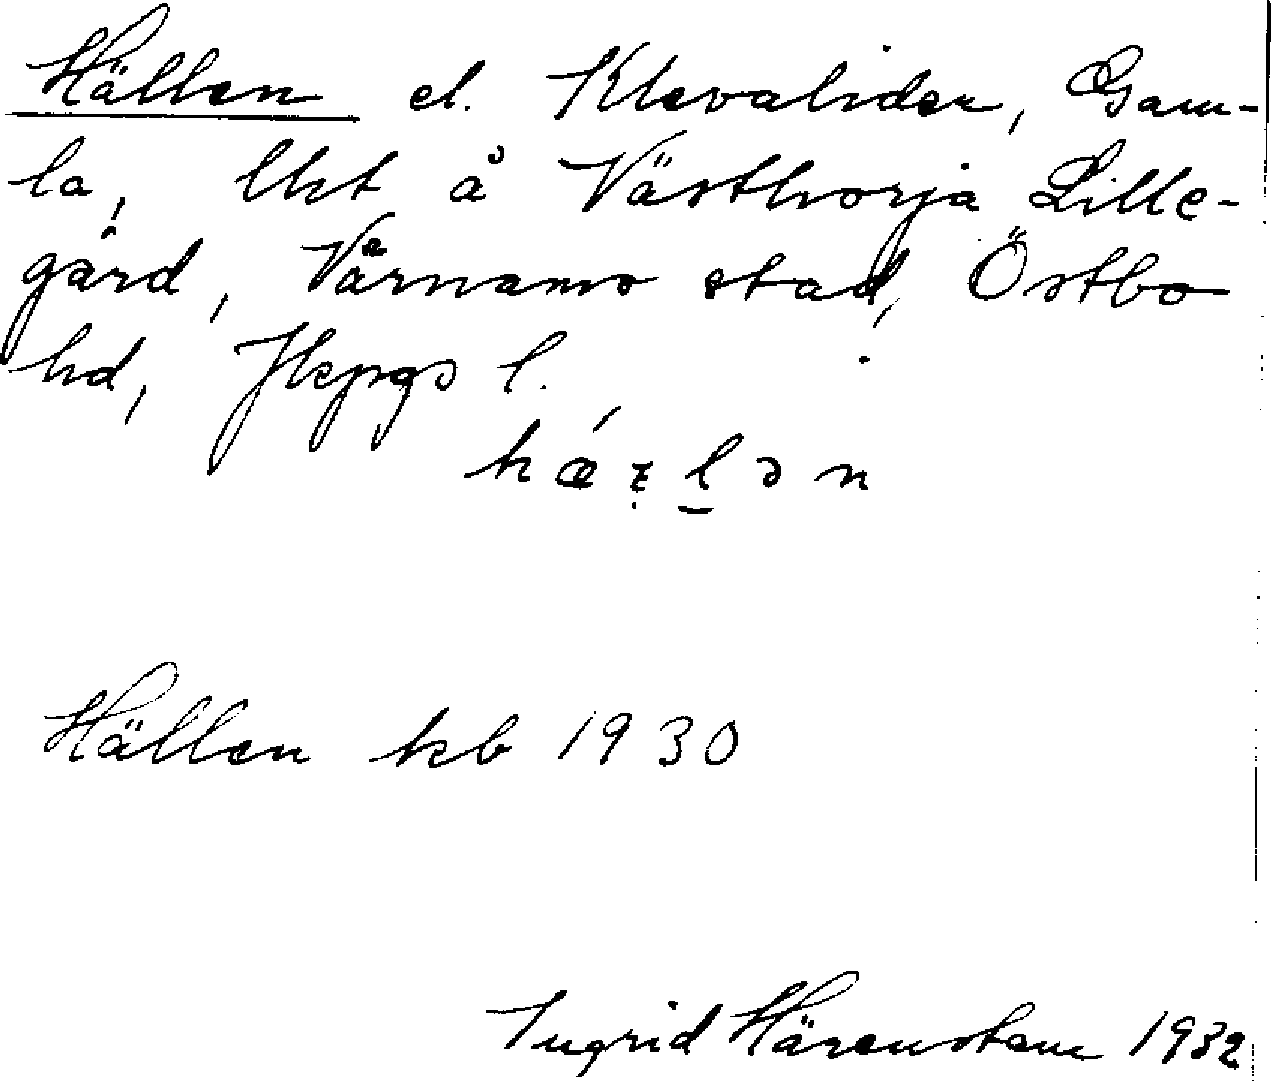 Hällen el. Klevaliden, Gam-
la, lht å Västhorja Lille-
gård, Värnamo stad, Östbo
hd, Jkpgs l.
Hällen kb 1930
Ingrid Härenstam 1932